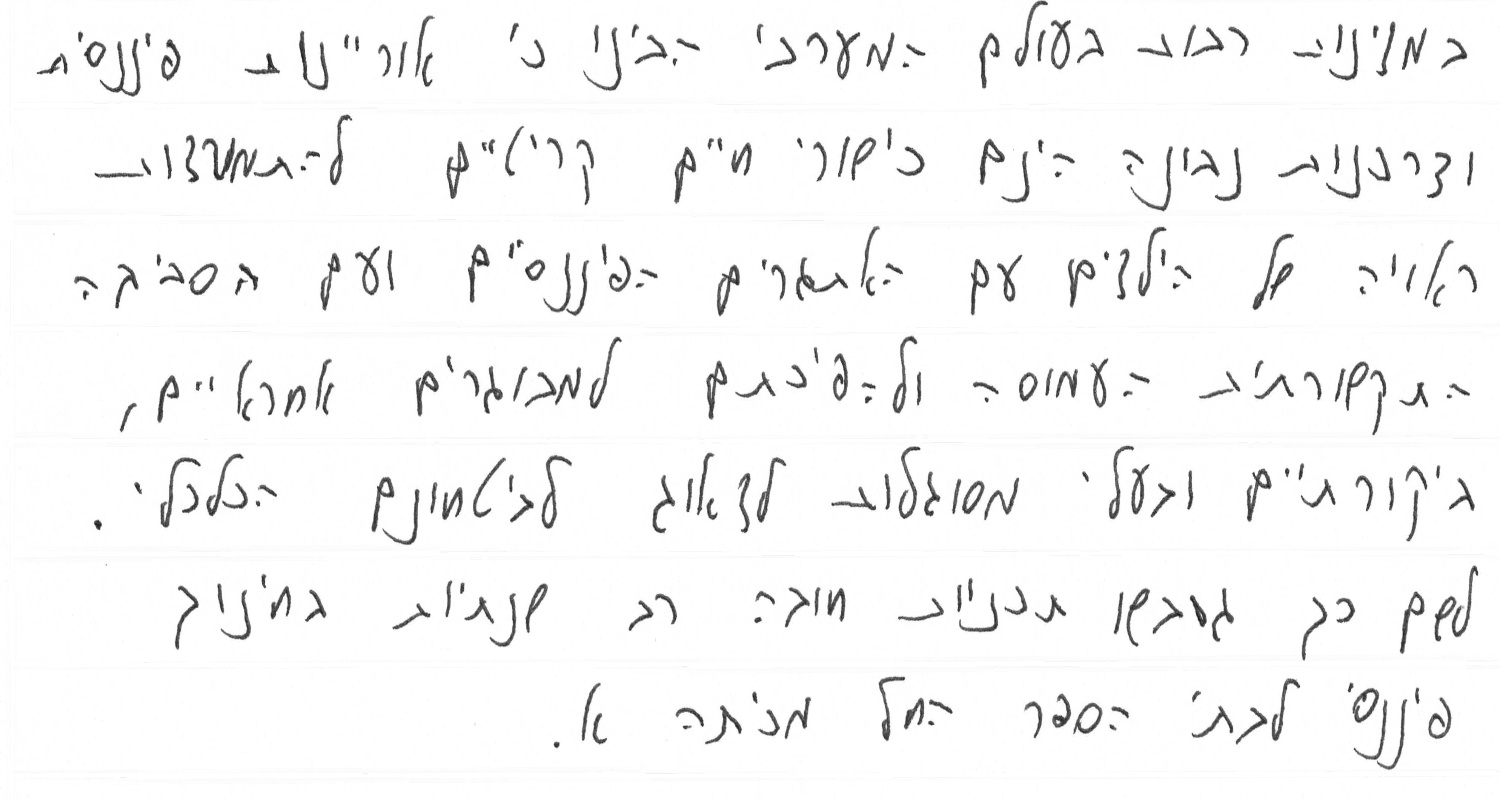 במדינות רבות בעולם המערבי הבינו כי אוריינות פיננסית
וצרכנות נבונה הינם כישורי חיים קריטיים להתמודדות
ראויה של הילדים עם האתגרים הפיננסיים ועם הסביבה
התקשורתית העמוסה ולהפיכתם למבוגרים אחראיים,
ביקורתיים ובעלי מסוגלות לדאוג לביטחונם הכלכלי.
לשם כך גובשו תכניות חובה רב שנתיות בחינוך
פיננסי לבתי הספר החל מכיתה א.